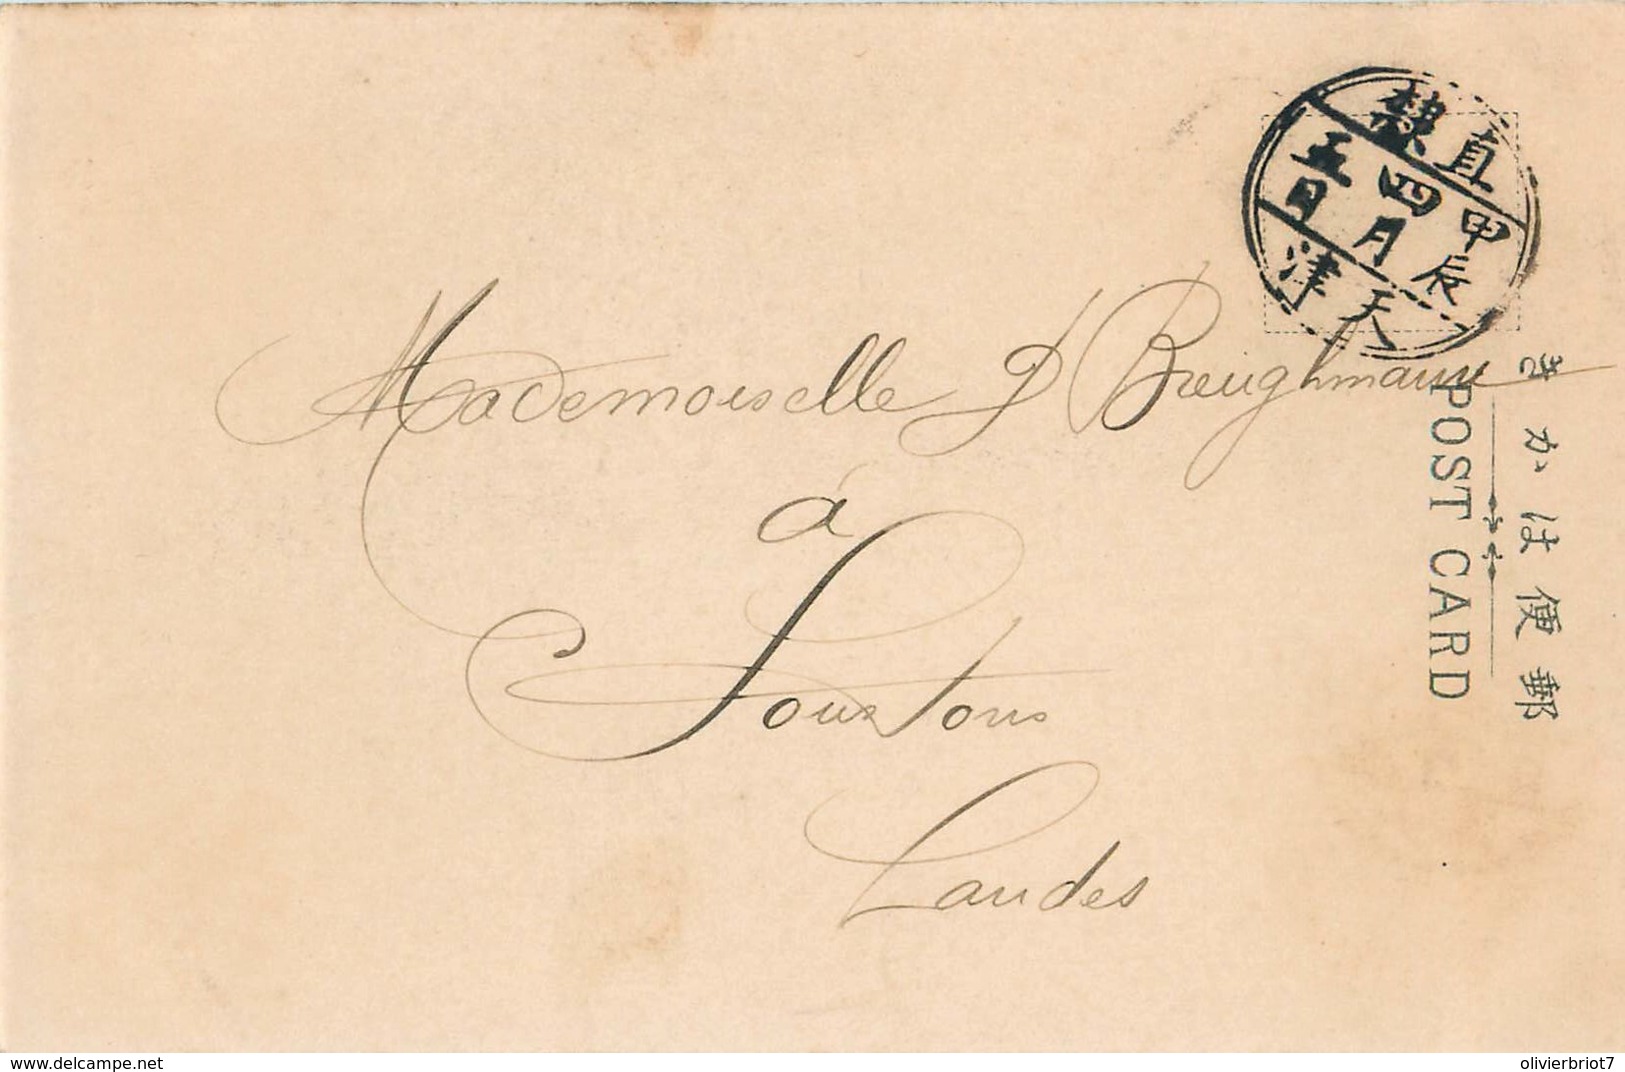 直隷
甲辰
四月
五日
天津
Mademoiselle J Breughmann
à
Soustons
Landes
POST CARD
郵便はかき
delcampe.net
olivierbriot7